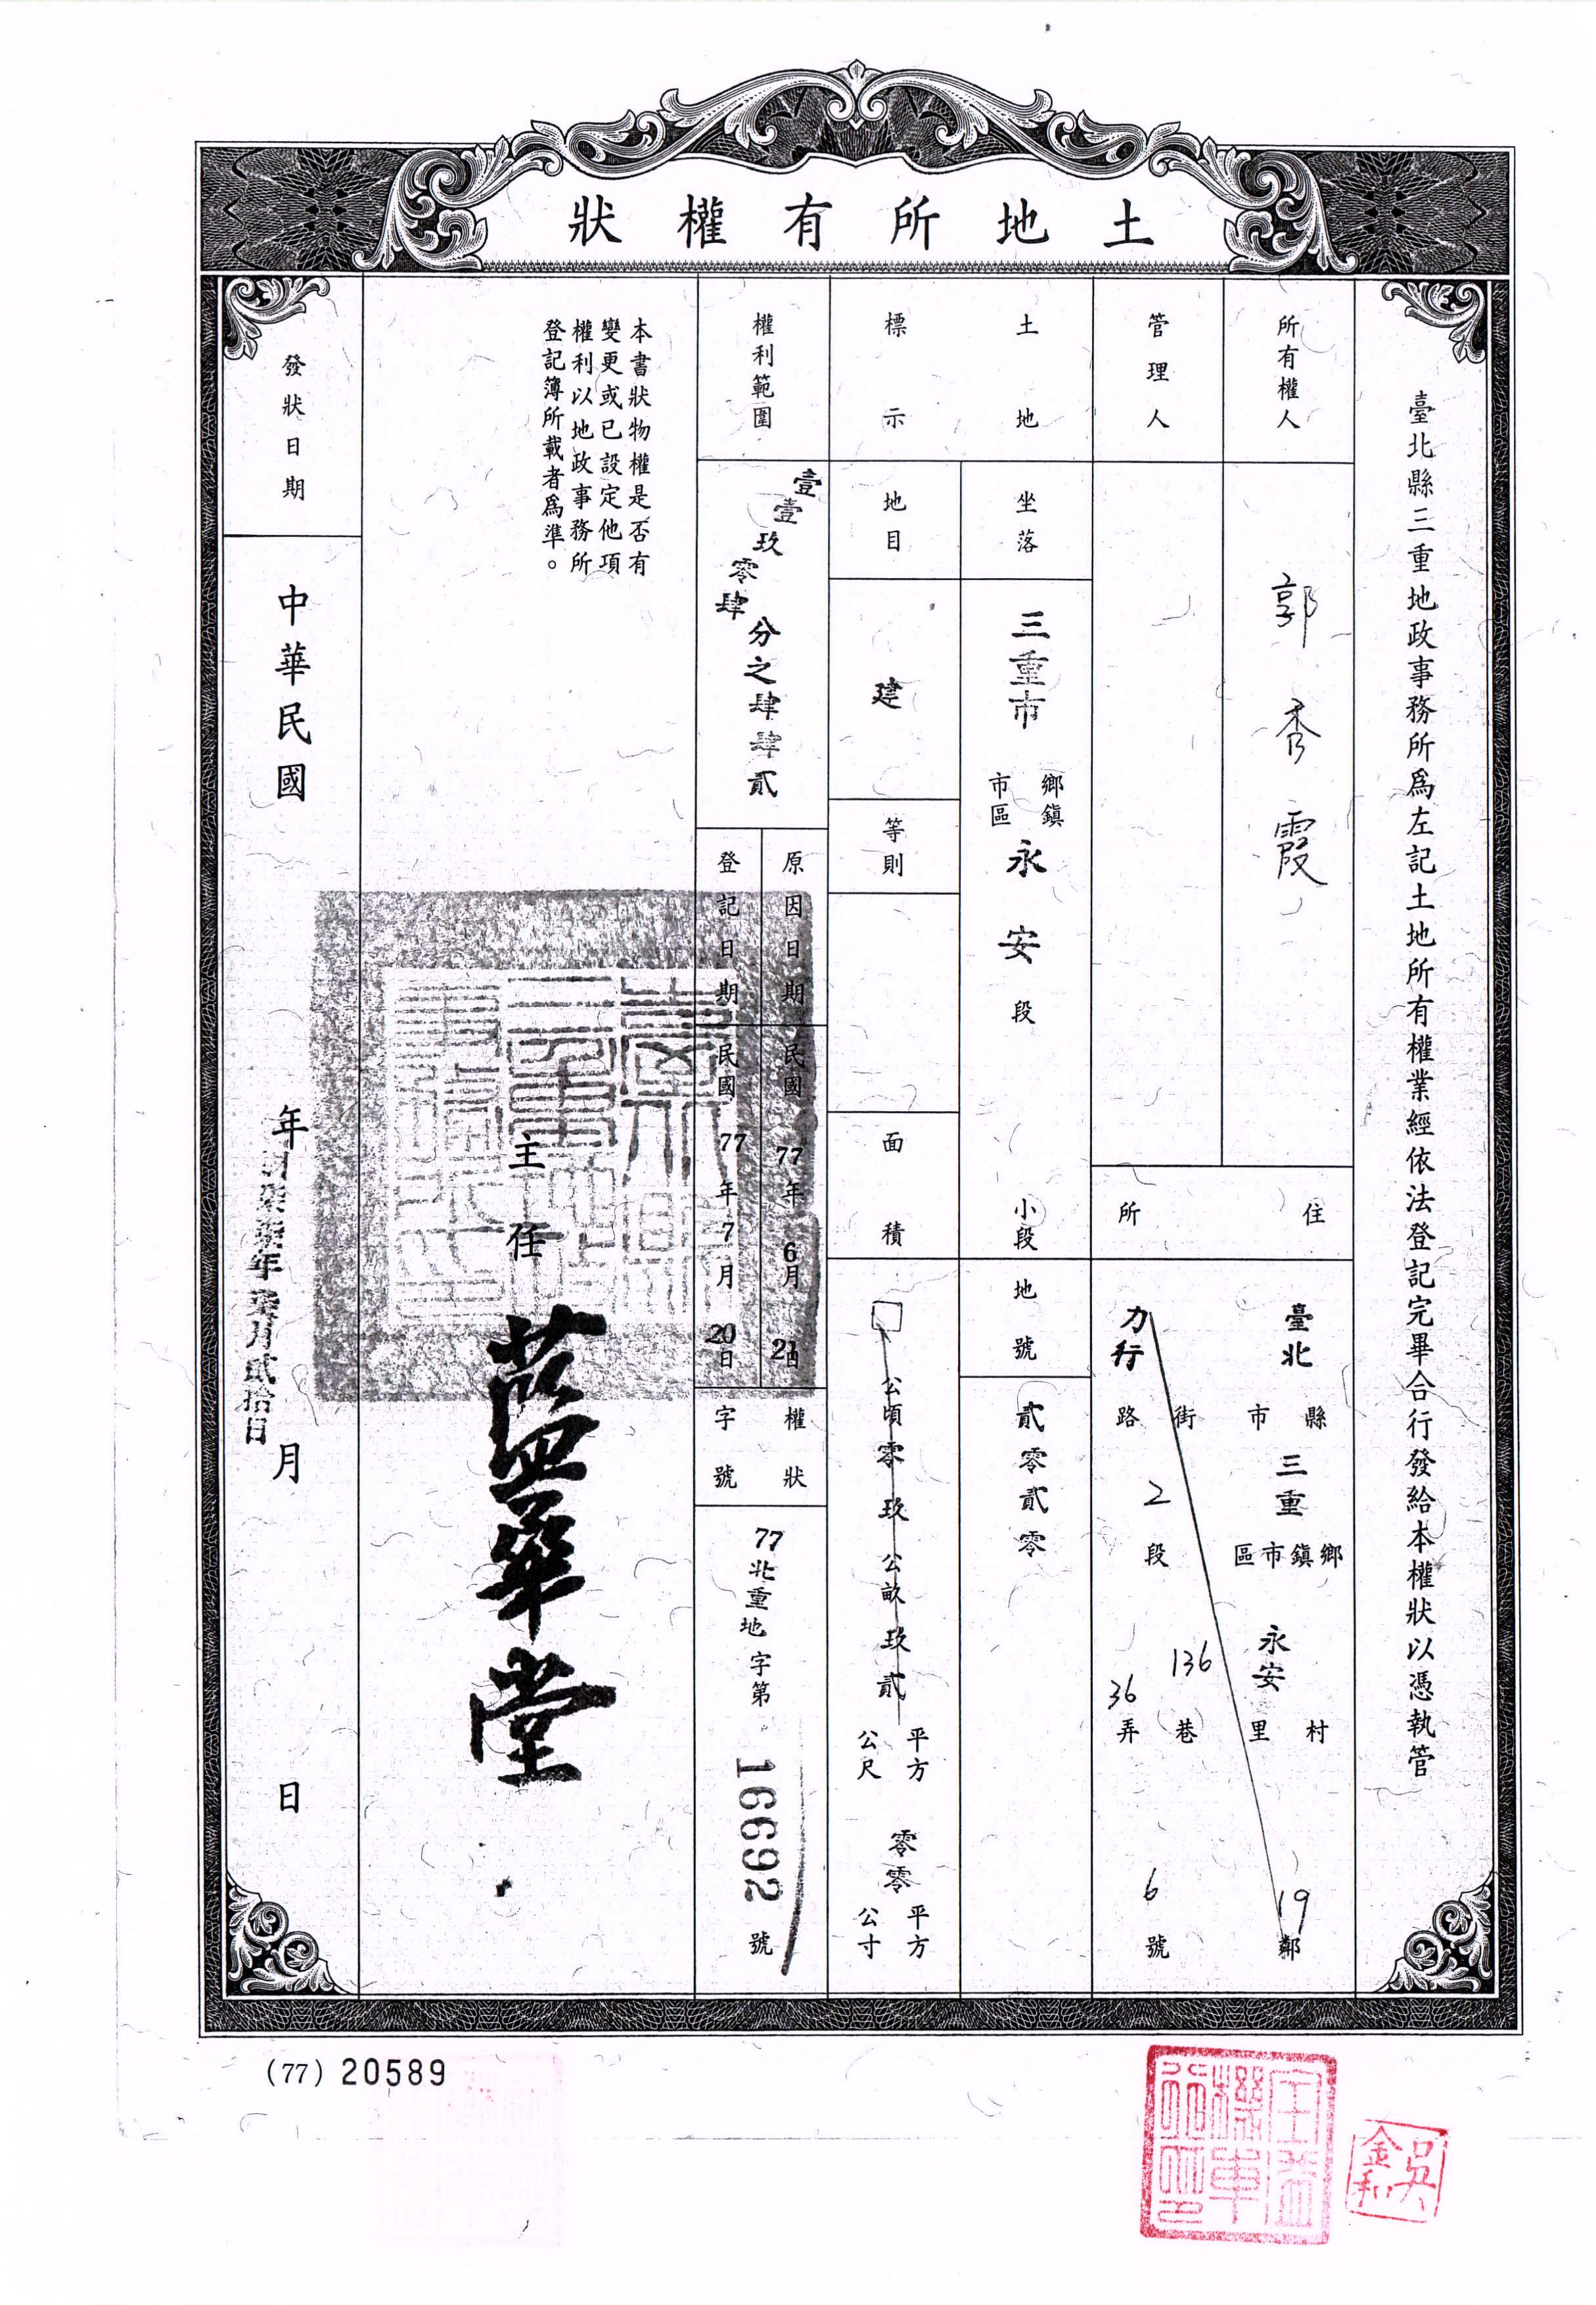 土地所有權狀
臺北縣三重地政事務所爲左記土地所有權業經依法登記完畢合行發給本權狀以憑執管
所有權人
郭秀霞
管理人
住所
臺北
縣市
三重
鄉鎮市區
永安
村里
19
鄰
力行
街路
2
段
136
巷
36
弄
6
號
土地標示
坐落
三重市
鄉鎮市區
永安
段
小段
地號
貳零貳零
地目
建
等則
面積
公頃零玖公畝玖貳
平方公尺
零零
平方公寸
權利範圍
壹壹玖零肆
分之肆肆貳
原因日期
民國77年6月21日
登記日期
民國77年7月20日
權狀字號
77北重地字第
16692
號
本書狀物權是否有
變更或已設定他項
權利以地政事務所
登記簿所載者爲準。
主任
藍華堂
發狀日期
中華民國
年
月
日
柒拾柒年柒月貳拾日
(77) 20589
吳金和